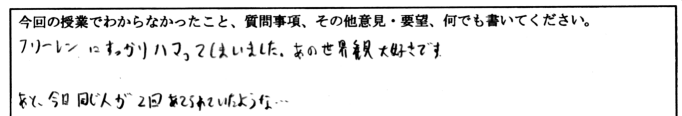 今回の授業でわからなかったこと、質問事項、その他意見・要望、何でも書いてください。
フリーレンにすっかりハマってしまいました。あの世界観大好きです
あと、今日同じ人が2回あてられていたような…